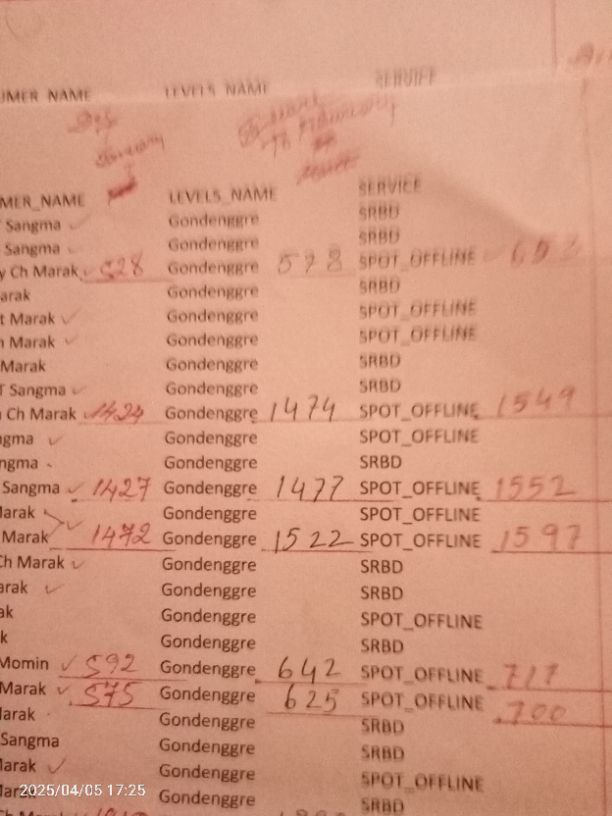 UMER_NAME LEVELS_NAME SERVICE
January
MER_NAME LEVELS_NAME SERVICE
Sangma ✓ Gondenggre SRBD
Sangma ✓ Gondenggre SRBD
y Ch Marak ✓ 528 Gondenggre 578 SPOT_OFFLINE 653
arak Gondenggre SRBD
t Marak ✓ Gondenggre SPOT_OFFLINE
Marak ✓ Gondenggre SPOT_OFFLINE
Marak Gondenggre SRBD
T Sangma ✓ Gondenggre SRBD
Ch Marak ✓ 1424 Gondenggre 1474 SPOT_OFFLINE 1549
ngma ✓ Gondenggre SPOT_OFFLINE
ngma Gondenggre SRBD
Sangma ✓ 1427 Gondenggre 1477 SPOT_OFFLINE 1552
Marak Gondenggre SPOT_OFFLINE
Marak ✓ 1472 Gondenggre 1522 SPOT_OFFLINE 1597
Ch Marak ✓ Gondenggre SRBD
arak ✓ Gondenggre SRBD
ak Gondenggre SPOT_OFFLINE
k Gondenggre SRBD
Momin ✓ 592 Gondenggre 642 SPOT_OFFLINE 717
Marak ✓ 575 Gondenggre 625 SPOT_OFFLINE 700
Marak Gondenggre SRBD
Sangma Gondenggre SRBD
Marak ✓ Gondenggre SPOT_OFFLINE
Marak Gondenggre SRBD
2025/04/05 17:25